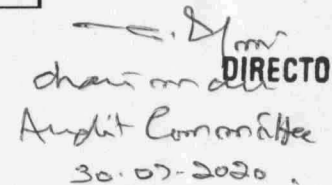 chairman
DIRECTO
Audit Committee
30.07-2020.